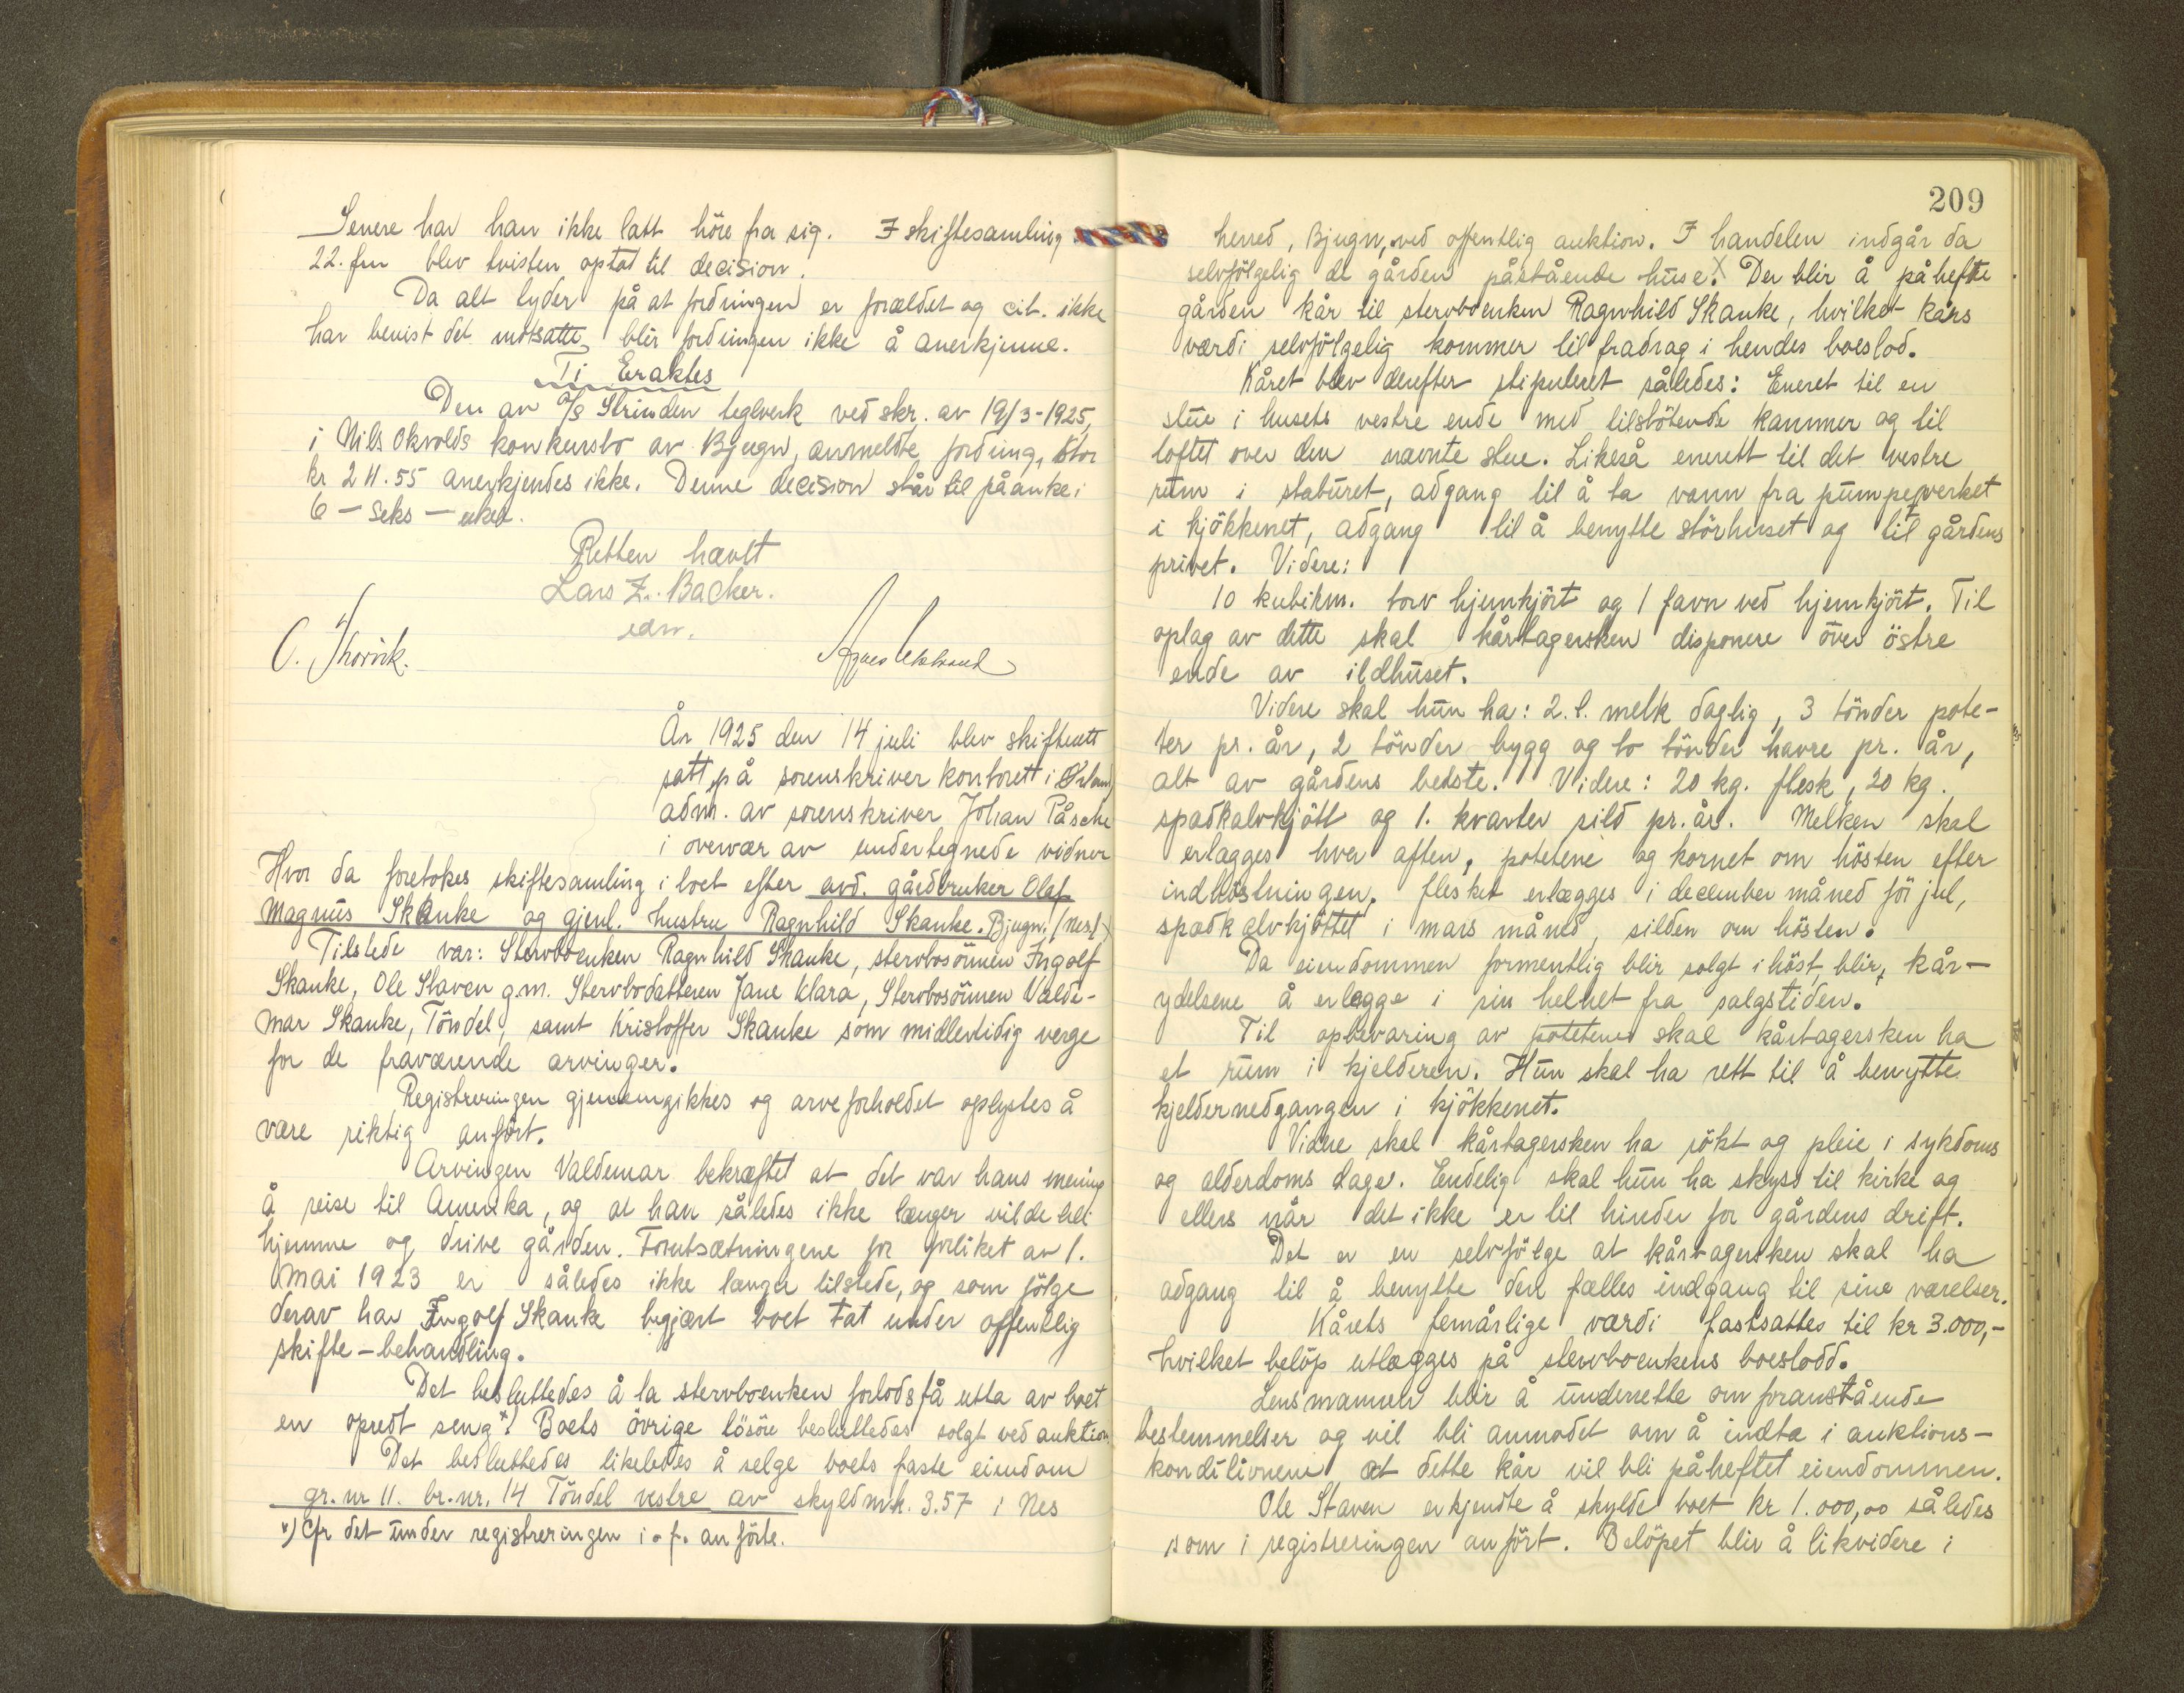 Senere har han ikke latt höre fra sig. I skiftesamling
22. fm blev tvisten optat til decision.
Da alt lyder på at fordringen er forældet og cit. ikke
har bevist det motsatte, blir fordringen ikke å anerkjenne.
Ti Eraktes
Den av A/S Strinden teglverk ved skr. av 19/3-1925,
i Nils Okvolds konkursbo av Bjugn, anmeldte fordring, stor
kr 24.55 anerkjendes ikke. Denne decision står til påanke i
6 - seks - uker.
Retten hævet
Lars Z. Backer.
edv.
C. Thorvik.
Agnes
År 1925 den 14 juli blev skifterett
satt på sorenskriver kontorett i Örland
adm. av sorenskriver Johan Påsche
i overvær av undertegnede vidner
Hvor da foretokes skiftesamling i boet efter avd. gårdbruker Olaf
Magnus Skanke og gjenl. hustru Ragnhild Skanke. Bjugn. (Nes)
Tilstede var: Stervboenken Ragnhild Skanke, stervbosönnen Ingolf
Skanke, Ole Staven g.m. Stervbodatteren Jane Klara, Stervbosönnen Valde-
mar Skanke, Töndel, samt Kristoffer Skanke som midlertidig verge
for de fraværende arvinger.
Registreringen gjennemgikkes og arveforholdet oplystes å
være riktig anfört.
Arvingen Valdemar bekræftet at det var hans mening
å reise til Amerika, og at han således ikke længer vilde bli
hjemme og drive gården. Forutsætningene for forliket av 1.
mai 1923 er således ikke længer tilstede, og som fölge
derav har Ingolf Skanke begjært boet tat under offentlig
skifte-behandling.
Det besluttedes å la stervboenken forlods få utta av boet
en opredt seng x! Boets övrige lösöre besluttedes solgt ved auktion
Det besluttedes likeledes å selge boets faste eiendom
gr. nr 11. br. nr. 14 Töndel vestre av skyldmk. 3.57 i Nes
x) Cfr det under registreringen i. f. anförte.
209
herred, Bjugn, ved offentlig auktion. I handelen indgår da
selvfölgelig de gården påstående huse. X Der blir å påhefte
gården kår til stervboenken Ragnhild Skanke, hvilket kårs
værdi selvfölgelig kommer til fradrag i hendes boeslod.
Kåret blev derefter stipuleret således: Eneret til en
stue i husets vestre ende med tilstötende kammer og til
loftet over den nævnte stue. Likeså enerett til det vestre
rum i staburet, adgang til å ta vann fra pumpeverket
i kjökkenet, adgang til å benytte störhuset og til gårdens
privet. Videre:
10 kubikm. torv hjemkjört og 1 favn ved hjemkjört. Til
oplag av dette skal kårtagersken disponere over östre
ende av ildhuset.
Videre skal hun ha: 2. l. melk daglig, 3 tönder pote-
ter pr. år, 2 tönder bygg og to tönder havre pr. år,
alt av gårdens bedste. Videre: 20 kg. flesk, 20 kg.
spædkalvkjött og 1. kvarter sild pr. år. Melken skal
erlægges hver aften, potetene og kornet om hösten efter
indhöstningen, flesket erlægges i december måned för jul,
spædkalvkjöttet i mars måned, silden om hösten.
Da eiendommen formentlig blir solgt i höst, blir kår-
ydelsene å erlægge i sin helhet fra salgstiden.
Til opbevaring av potetene skal kårtagersken ha
et rum i kjelderen. Hun skal ha rett til å benytte
kjeldernedgangen i kjökkenet.
Videre skal kårtagersken ha rökt og pleie i sykdoms
og alderdoms dage. Endelig skal hun ha skyss til kirke og
ellers når det ikke er til hinder for gårdens drift.
Det er en selvfölge at kårtagersken skal ha
adgang til å benytte den fælles indgang til sine værelser.
Kårets femårlige værdi fastsattes til kr 3.000,-
hvilket belöp utlægges på stervboenkens boeslodd.
Lensmannen blir å underrette om foranstående
bestemmelser og vil bli anmodet om å indta i auktions-
konditionene at dette kår vil bli påheftet eiendommen.
Ole Staven erkjendte å skylde boet kr 1.000,00 således
som i registreringen anfört. Belöpet blir å likvidere i